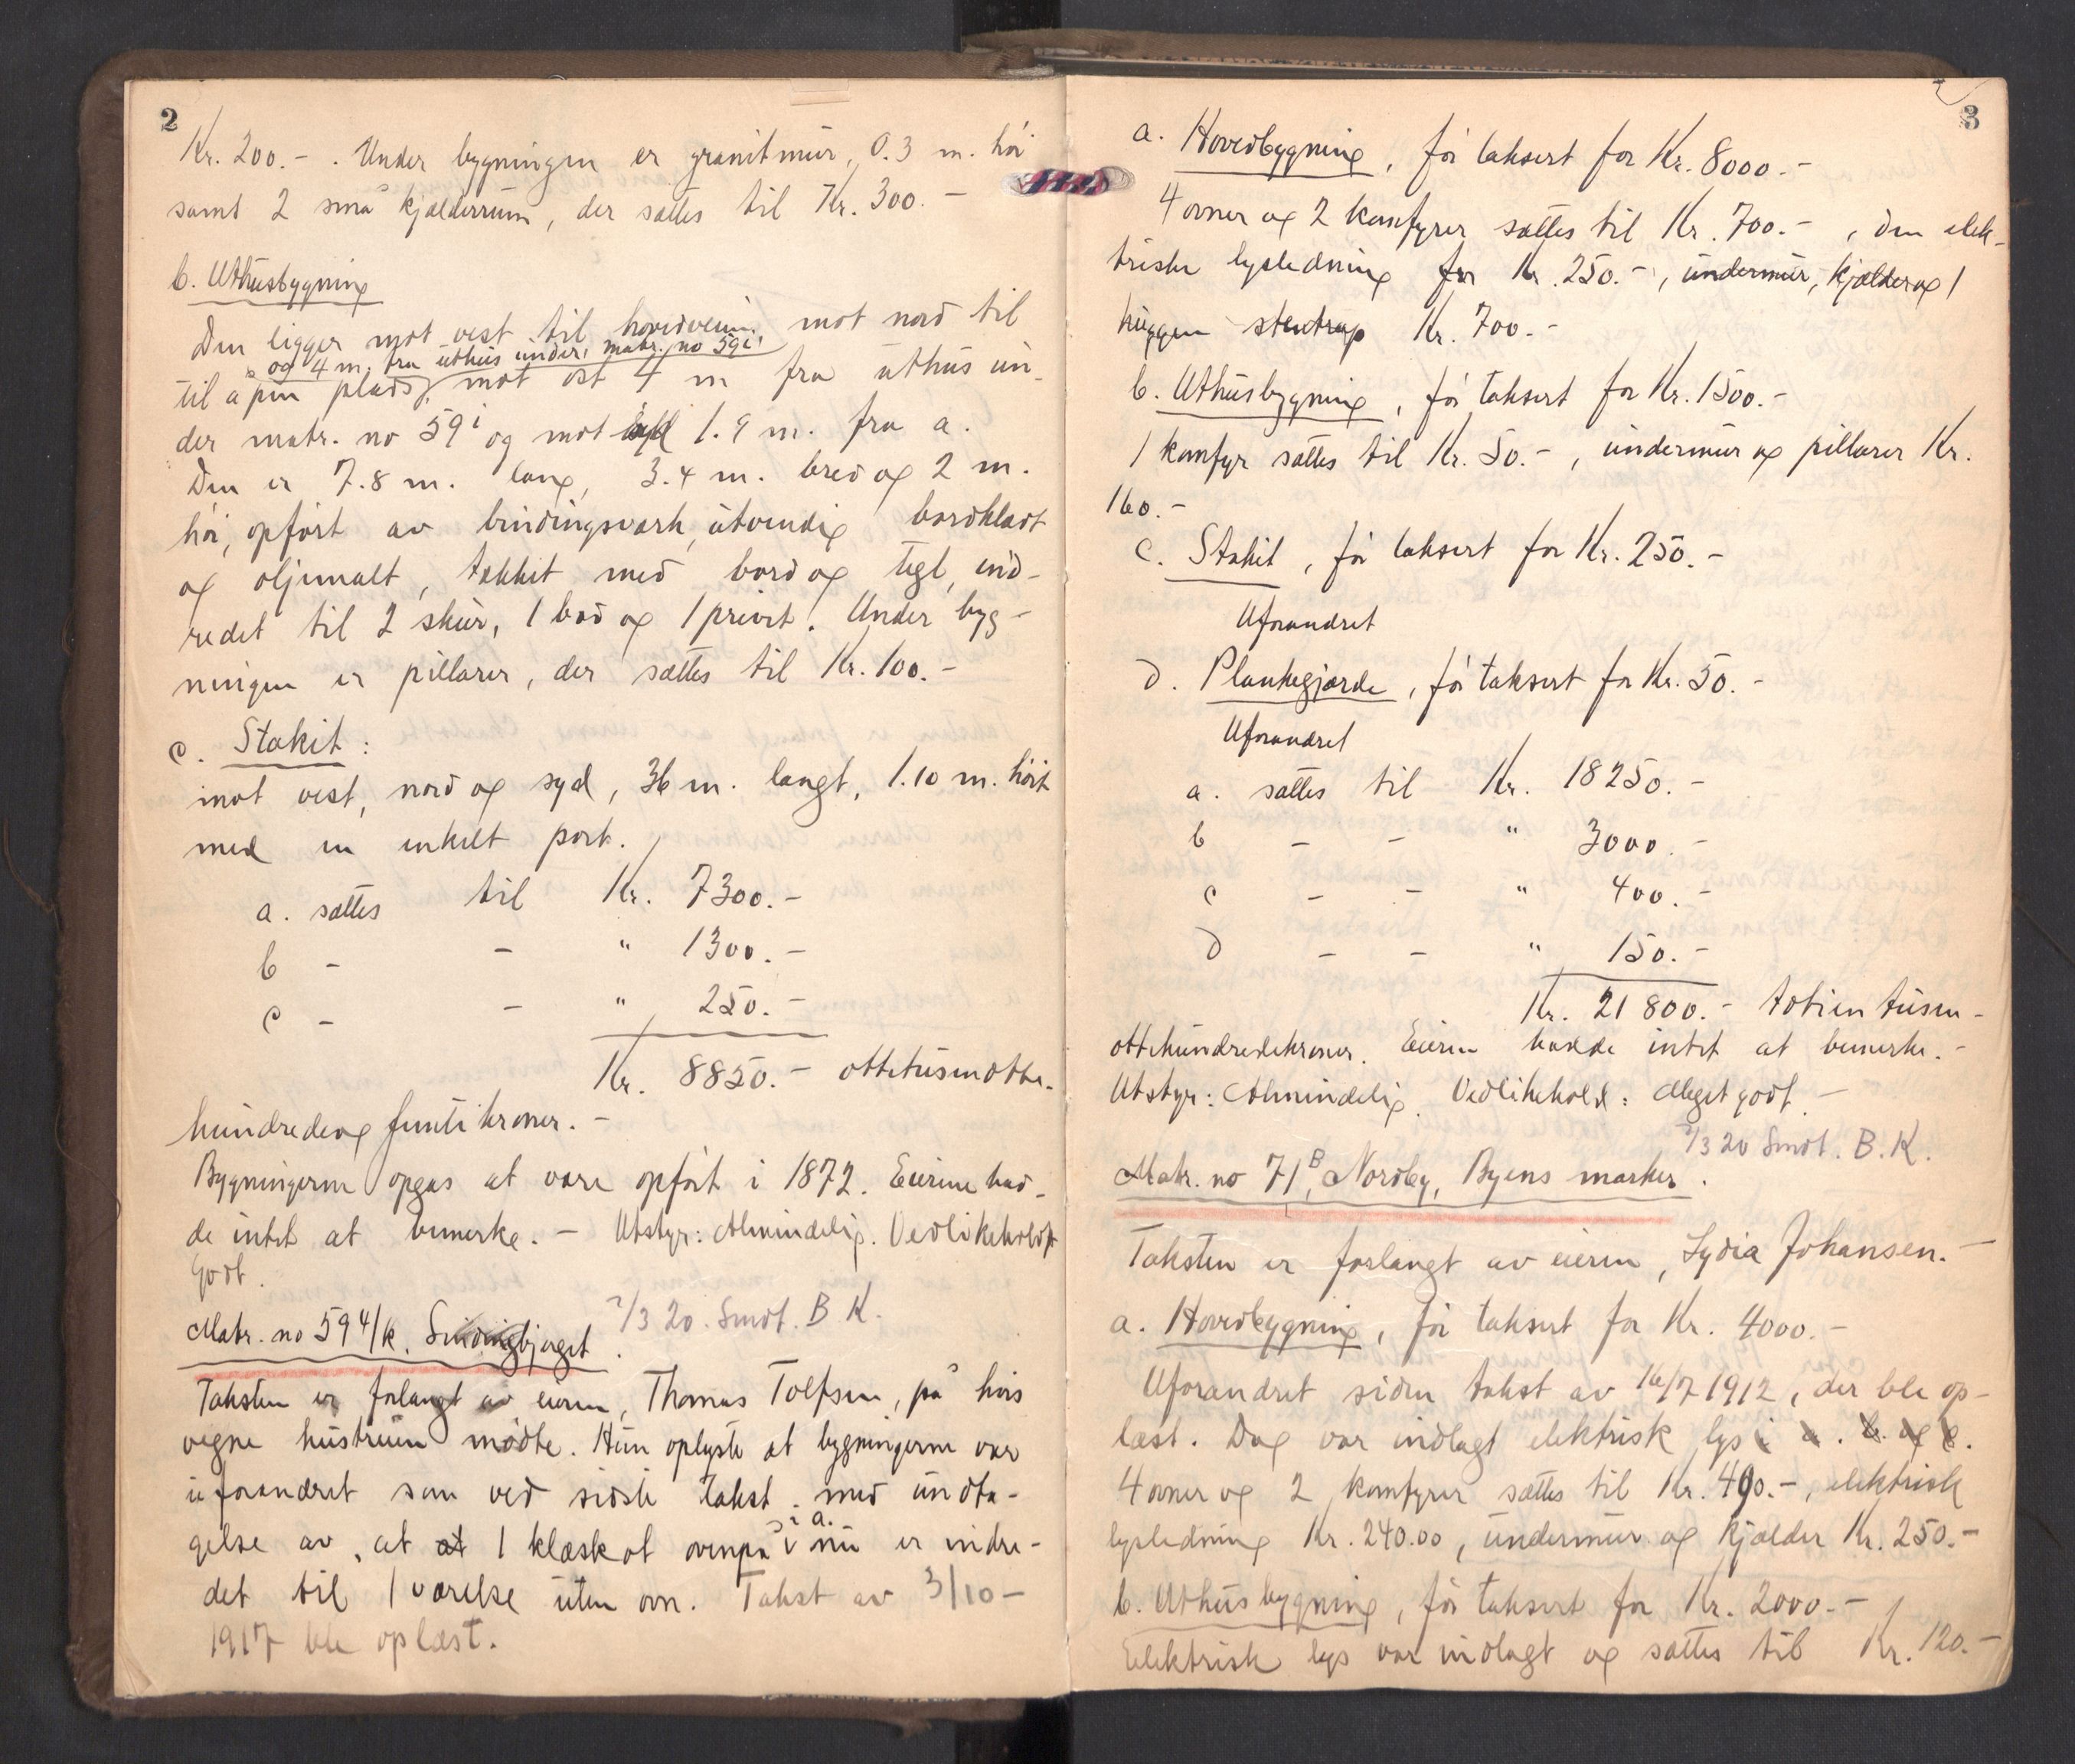 2
Kr. 200.- . Under bygningen er granitmur, 0.3 m. høi
samt 2 små kjælderrum, der sættes til Kr. 300.-
b. Uthusbygning
Den ligger mot vest til hovedveien, mot nord til
og 4 m. fra uthus under matr. no 59i
til åpen plads, mot øst 4 m fra uthus un-
der matr. no 59i og mot syd 1.9 m. fra a.
Den er 7.8 m. lang, 3.4 m. bred og 2 m.
høi, opført av bindingsværk, utvendig bordklædt
og oljemalt, tækket med bord og tegl, ind-
redet til 2 skur, 1 bod og 1 privet. Under byg-
ningen er pillarer, der sættes til Kr. 100.-
c. Stakit:
mot vest, nord og syd, 36 m. langt, 1.10 m. høit
med en enkelt port.
a. sættes til Kr. 7300.-
b - - " 1300.-
c - - " 250.-
Kr. 8850.- ottetusenotte-
hundredeog femti kroner.-
Bygningerne opgas at være opført i 1872. Eierine had-
de intet at bemerke.- Utstyr: Almindelig. Vedlikehold:
Godt.
Matr. no 594/k. 2/3 20. Smdt. B K.
Taksten er forlangt av eieren, Thomas Tolfsen, på hvis
vegne hustruen mødte. Hun oplyste at bygningerne var
uforandret som ved sidste takst. med undta-
gelse av, at at 1 klæskot ovenpå i a. nu er indre-
det til 1 værelse uten ovn. Takst av 3/10-
1917 ble oplæst.
3
a. Hovedbygning, før taksert for Kr. 8000.-
4 ovner og 2 komfyrer sættes til Kr. 700.- , den elek-
triske lysledning for Kr. 250.-, undermur, kjælder og 1
huggen stentrap Kr. 700.-
b. Uthusbygning, før taksert for Kr. 1500.-
1 komfyr sættes til Kr. 50.-, undermur og pillarer Kr.
160.-
c. Stakit, før taksert for Kr. 250.-
Uforandret
d. Plankegjærde, før taksert for Kr. 50.-
Uforandret
a. sættes til Kr. 18250.-
b - - " 3000.-
c - - " 400.-
d - - " 150.-
Kr. 21800.- totientusen-
ottehundredekroner. Eieren hadde intet at bemerke.-
Utstyr: Almindelig. Vedlikehold: Meget godt.-
2/3 20 Smdt. B. K.
Matr. no 71B, Nordby, Byens marker.
Taksten er forlangt av eieren, Lydia Johansen.-
a. Hovedbygning, før taksert for Kr. 4000.-
Uforandret siden takst av 16/7 1912, der ble op-
læst. Dog var indlagt elektrisk lys i a. b. og c.
4 ovner og 2 komfyrer sættes til Kr. 400.-, elektrisk
lysledning Kr. 240.00, undermur og kjælder Kr. 250.-
b. Uthusbygning, før taksert for Kr. 2000.-
Elektrisk lys var indlagt og sættes til Kr. 120.-